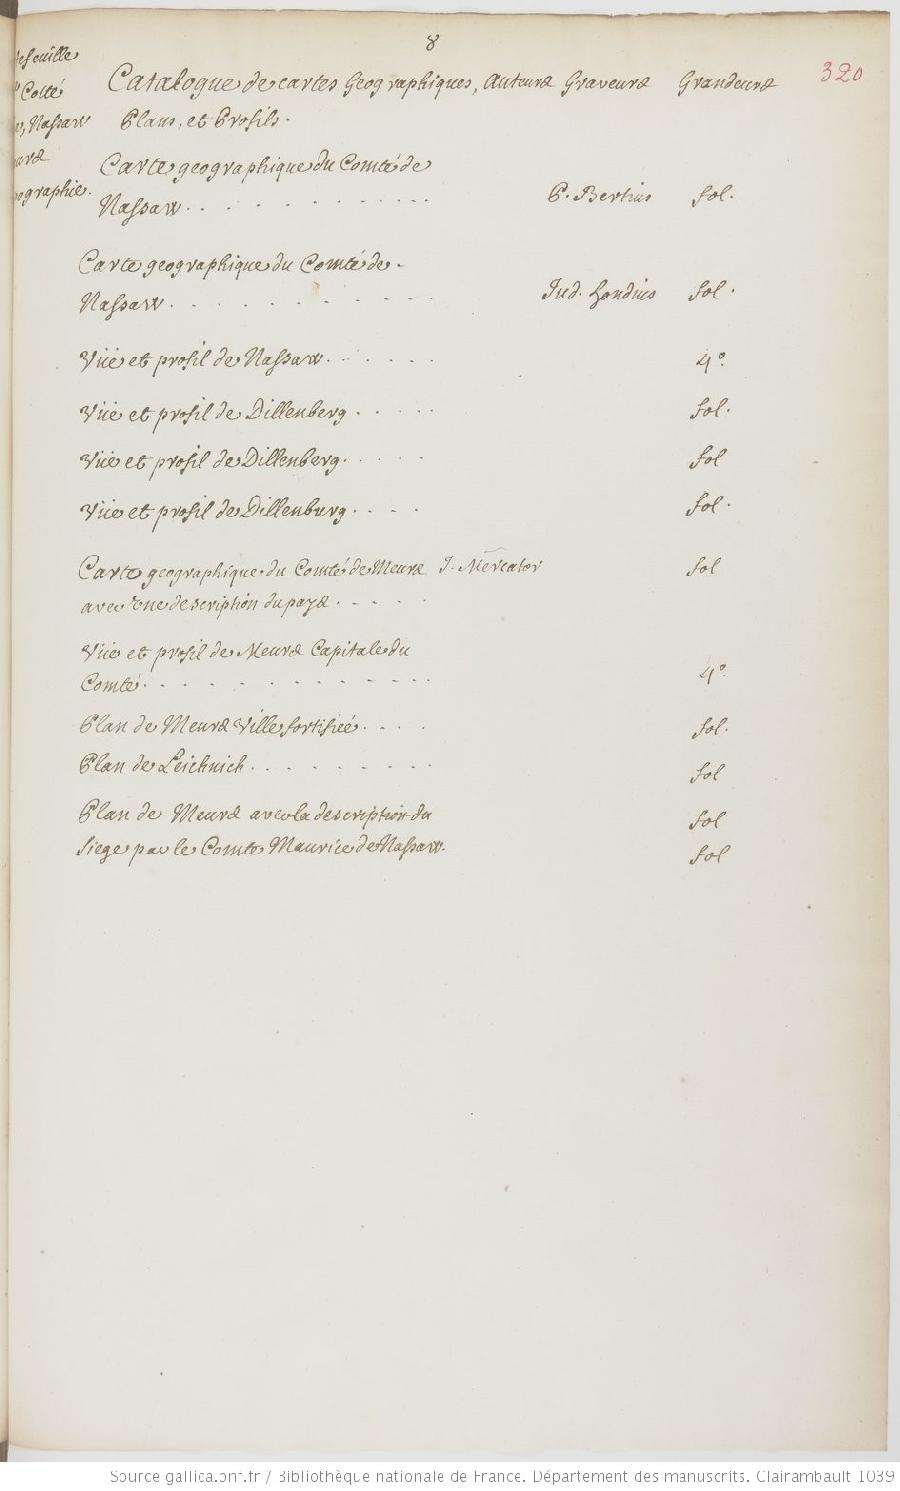 8
320
Catalogue de cartes Geographiques, Auteurs Graveurs Grandeurs
Plans, et Profils.
Nassaw
ographie.
Carte geographique du Comté de
Nassaw. P. Bertius fol.
Carte geographique du Comté de
Nassaw. Jud. Hondius fol.
Vüe et profil de Nassaw. 4°.
Vüe et profil de Dillenberg. fol.
Vüe et profil de Dillenberg. fol
Vüe et profil de Dillenburg. fol.
Carte geographique du Comté de Meurs J. Mercator fol
avec une description du pays.
Vüe et profil de Meurs Capitale du
Comté. 4°.
Plan de Meurs Ville fortifiée. fol.
Plan de Leichnich. fol
Plan de Meurs avec la description du fol
siege par le Comte Maurice de Nassaw. fol
Source gallica.bnf.fr / Bibliothèque nationale de France. Département des manuscrits. Clairambault 1039